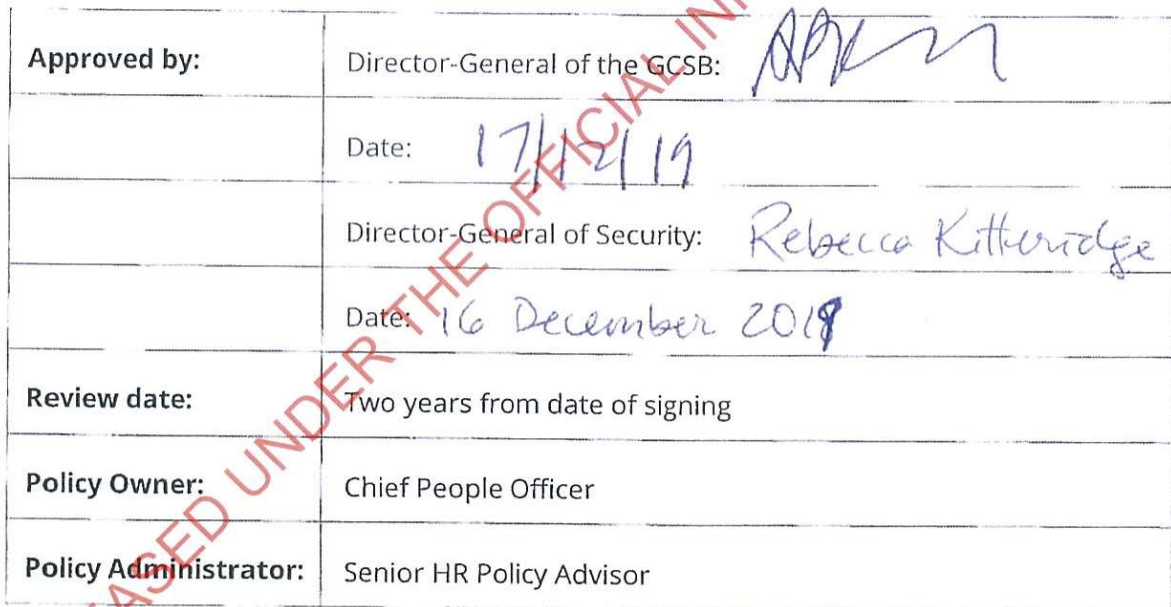 Approved by:
Director-General of the GCSB:
Date: 17/12/19
Director-General of Security: Rebecca Kitteridge
Date: 16 December 2019
Review date:
Two years from date of signing
Policy Owner:
Chief People Officer
Policy Administrator:
Senior HR Policy Advisor
ASED UNDER THE OFFICIAL IN